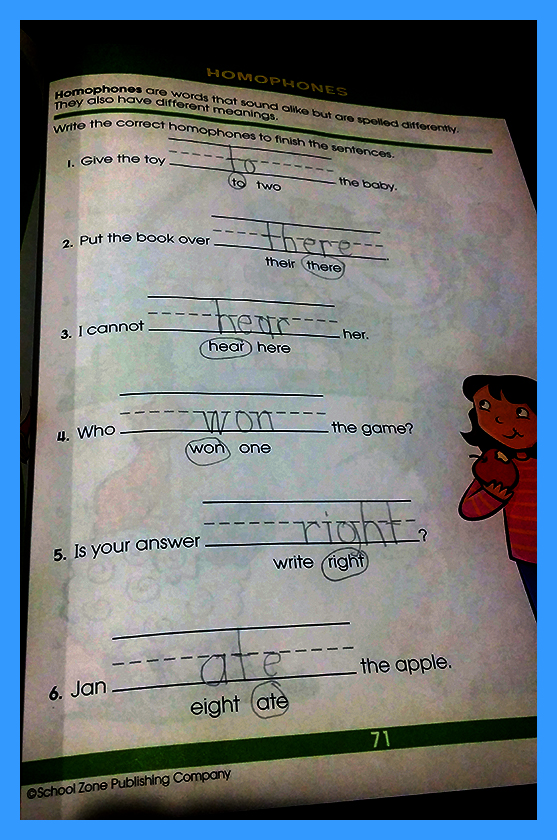 HOMOPHONES
Homophones are words that sound alike but are spelled differently.
They also have different meanings.
Write the correct homophones to finish the sentences.
1. Give the toy to the baby.
to two
2. Put the book over there
their there
3. I cannot hear her.
hear here
4. Who won the game?
won one
5. Is your answer right ?
write right
6. Jan ate the apple.
eight ate
71
©School Zone Publishing Company